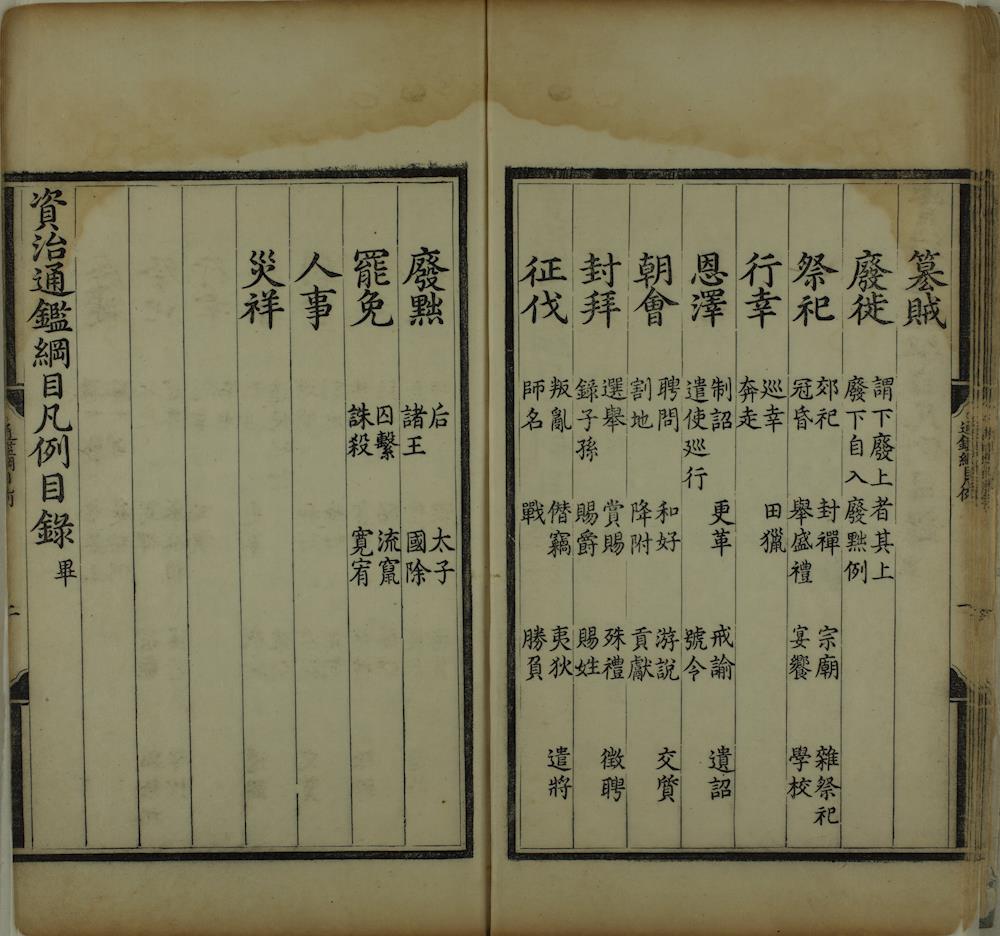 篡賊
廢徙
謂下廢上者其上
廢下自入廢黜例
祭祀
郊祀 封禪 宗廟 雜祭祀
冠昏 舉盛禮 宴饗 學校
行幸
巡幸 田獵
奔走
恩澤
制詔 更革 戒諭 遺詔
遣使巡行 號令
朝會
聘問 和好 游說 交質
割地 降附 貢獻
封拜
選舉 賞賜 殊禮 徵聘
錄子孫 賜爵 賜姓
征伐
叛亂 僭竊 夷狄 遣將
師名 戰 勝負
廢黜
后 太子
諸王 國除
罷免
囚繫 流竄
誅殺 寬宥
人事
災祥
資治通鑑綱目凡例目錄 畢